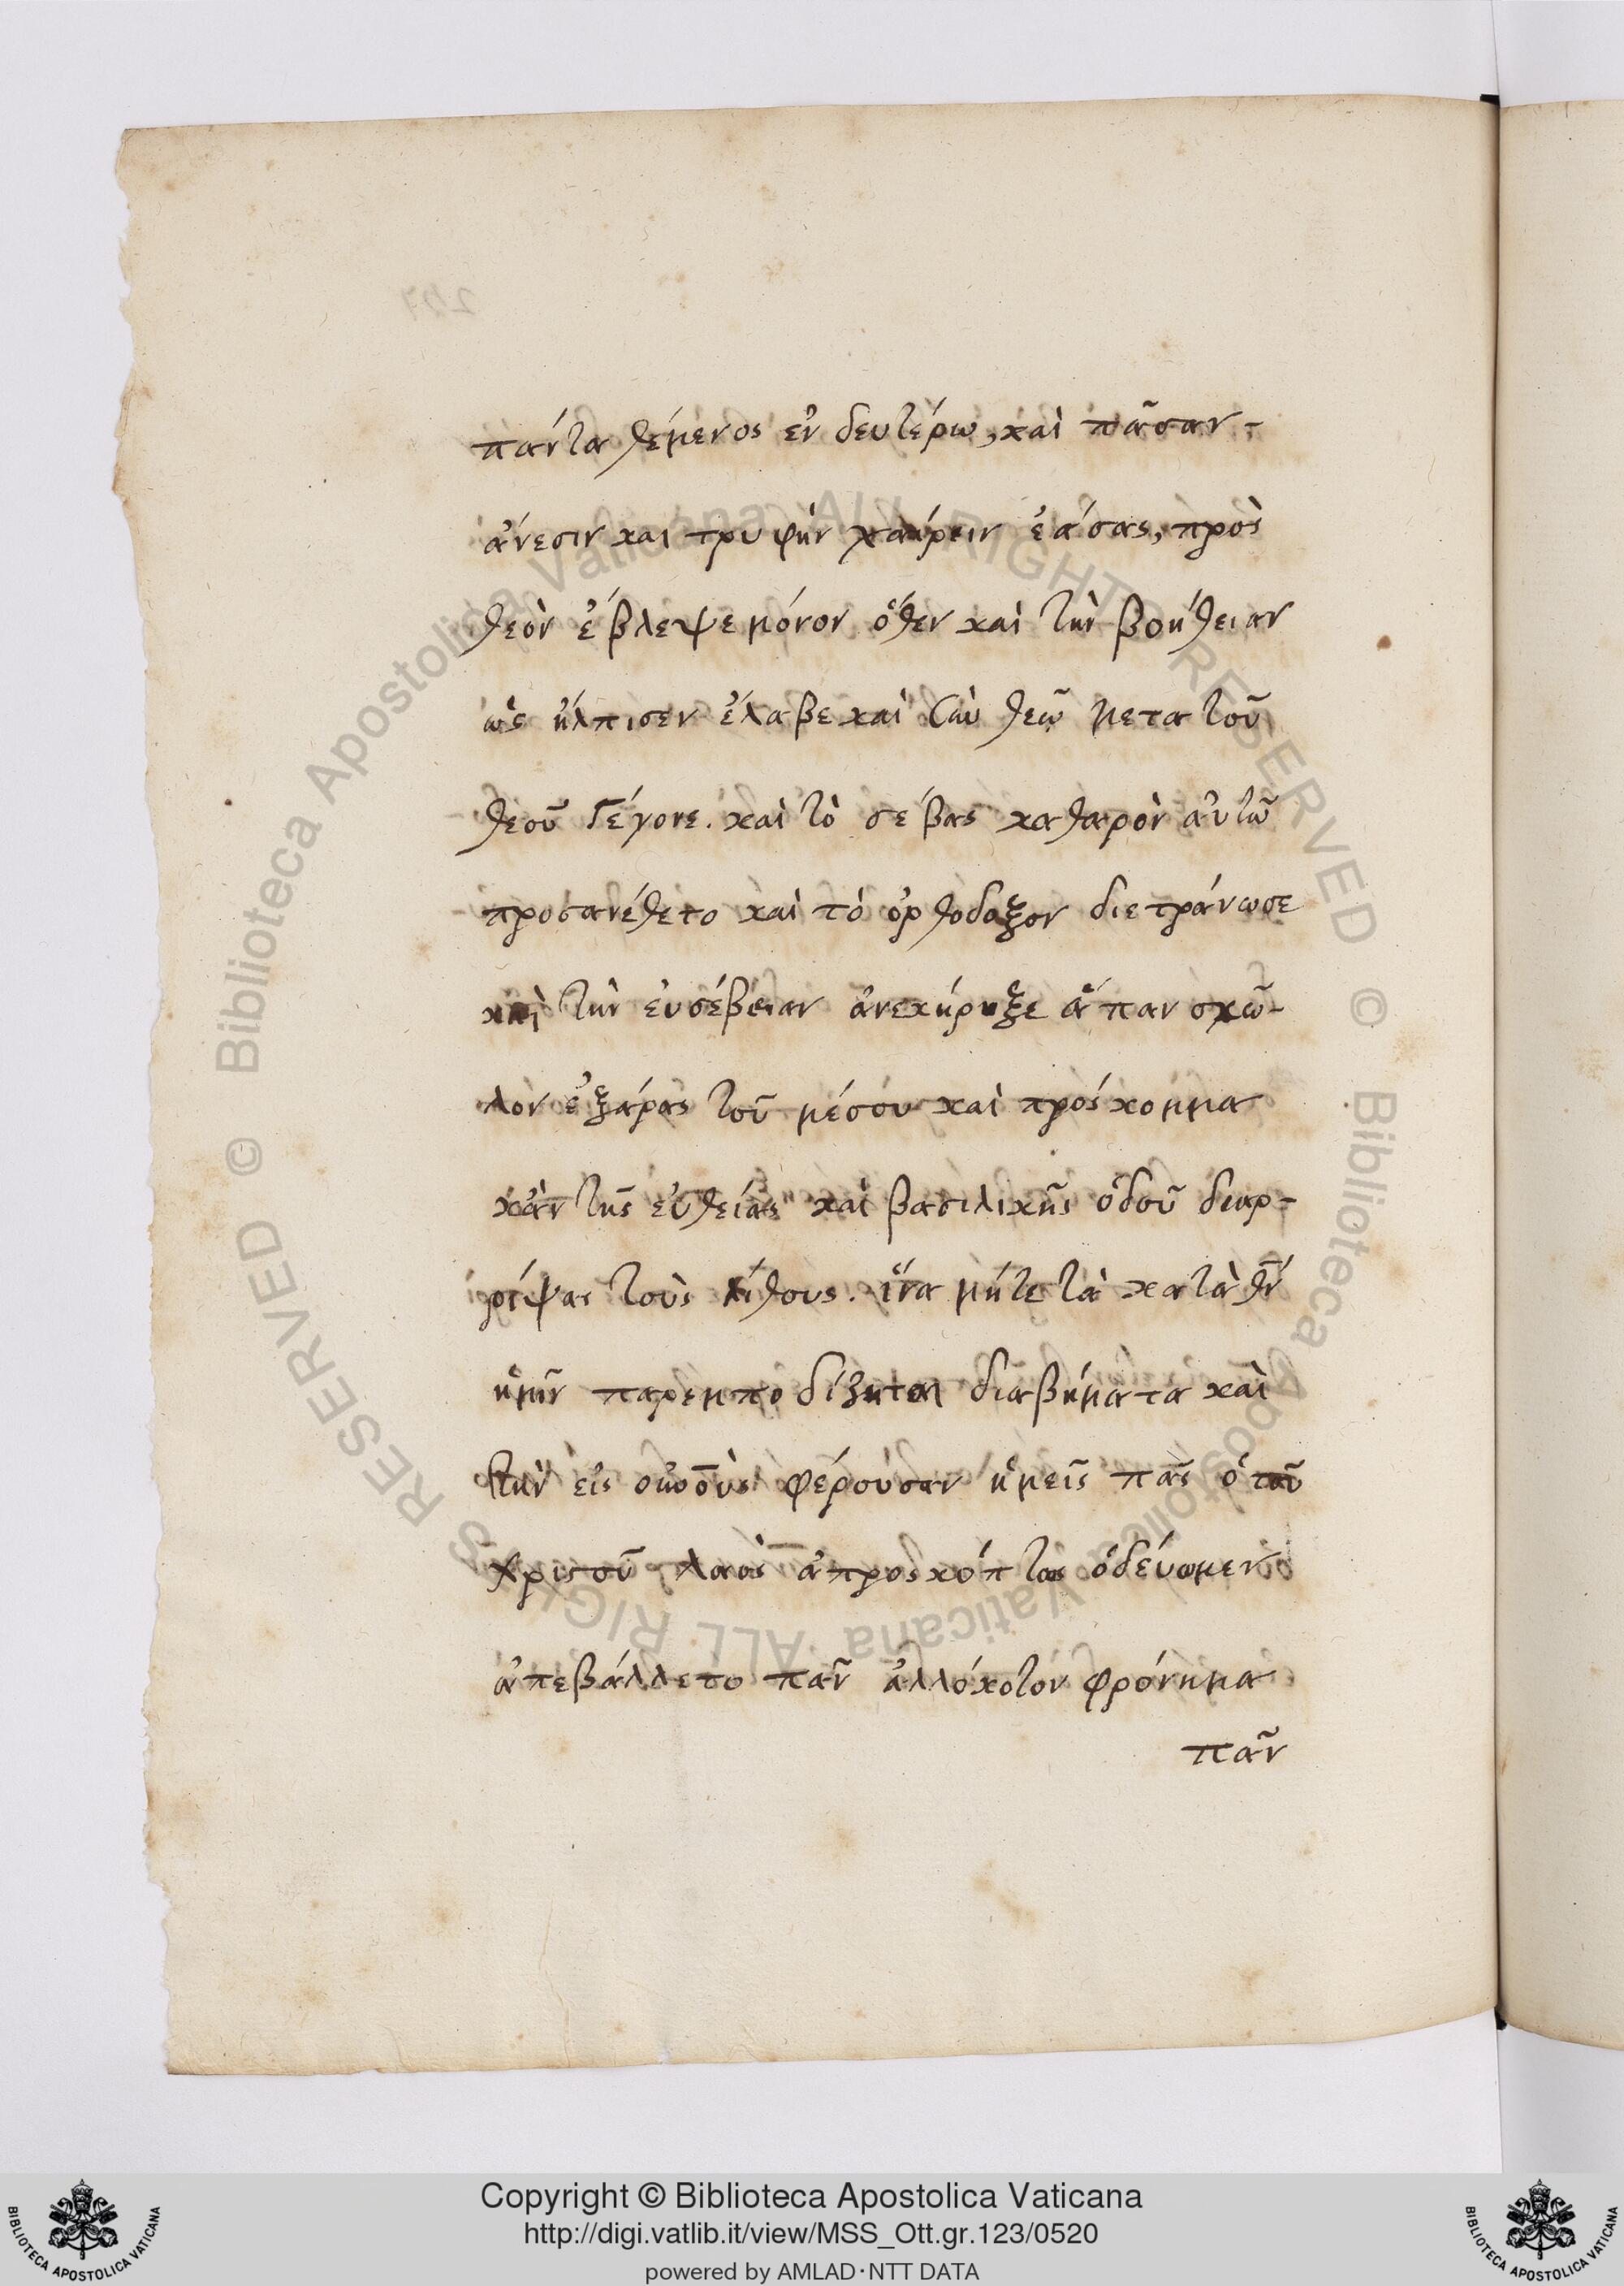 πάντα θέμενος ἐν δευτέρω, καὶ πᾶσαν-
ἄνεσιν και τρυφὴν χαίρειν ἐάσας, πρὸς
θεὸν ἔβλεψε μόνον ὅθεν καὶ τὴν βοήθειαν
ὡς ἤλπισεν ἔλαβε καὶ σὺν θεῶ μετα τοῦ
θεοῦ γέγονε. καὶ τὸ σέβας καθαρὸν αὐτῶ
προσανέθετο καὶ τὸ ὀρθόδοξον διετράνωσε
καὶ τὴν εὐσέβειαν ἀνεκήρυξε ἅπαν σκῶ-
λον ἐξάρας τοῦ μέσου καὶ πρόσκομμα
κἀν τῆς εὐθείας καὶ βασιλικῆς ὁδοῦ διαρ-
ρίψας τοὺς λίθους. ἵνα μήτε τὰ κατὰ θν̅
ἡμῖν παρεμποδίζηται διαβήματα καὶ
τὴν εἰς φέρουσαν ἡμεῖς πᾶς ὁ τοῦ
Χριστοῦ λαὸς ἀπροσκόπτως ὁδεύωμεν
ἀπεβάλλετο πᾶν ἀλλόκοτον φρόνημα
πᾶν
Copyright © Biblioteca Apostolica Vaticana
http://digi.vatlib.it/view/MSS_Ott.gr.123/0520
powered by AMLAD·NTT DATA
BIBLIOTECA APOSTOLICA VATICANA
BIBLIOTECA APOSTOLICA VATICANA
© Biblioteca Apostolica Vaticana ALL RIGHTS RESERVED
© Biblioteca Apostolica Vaticana ALL RIGHTS RESERVED